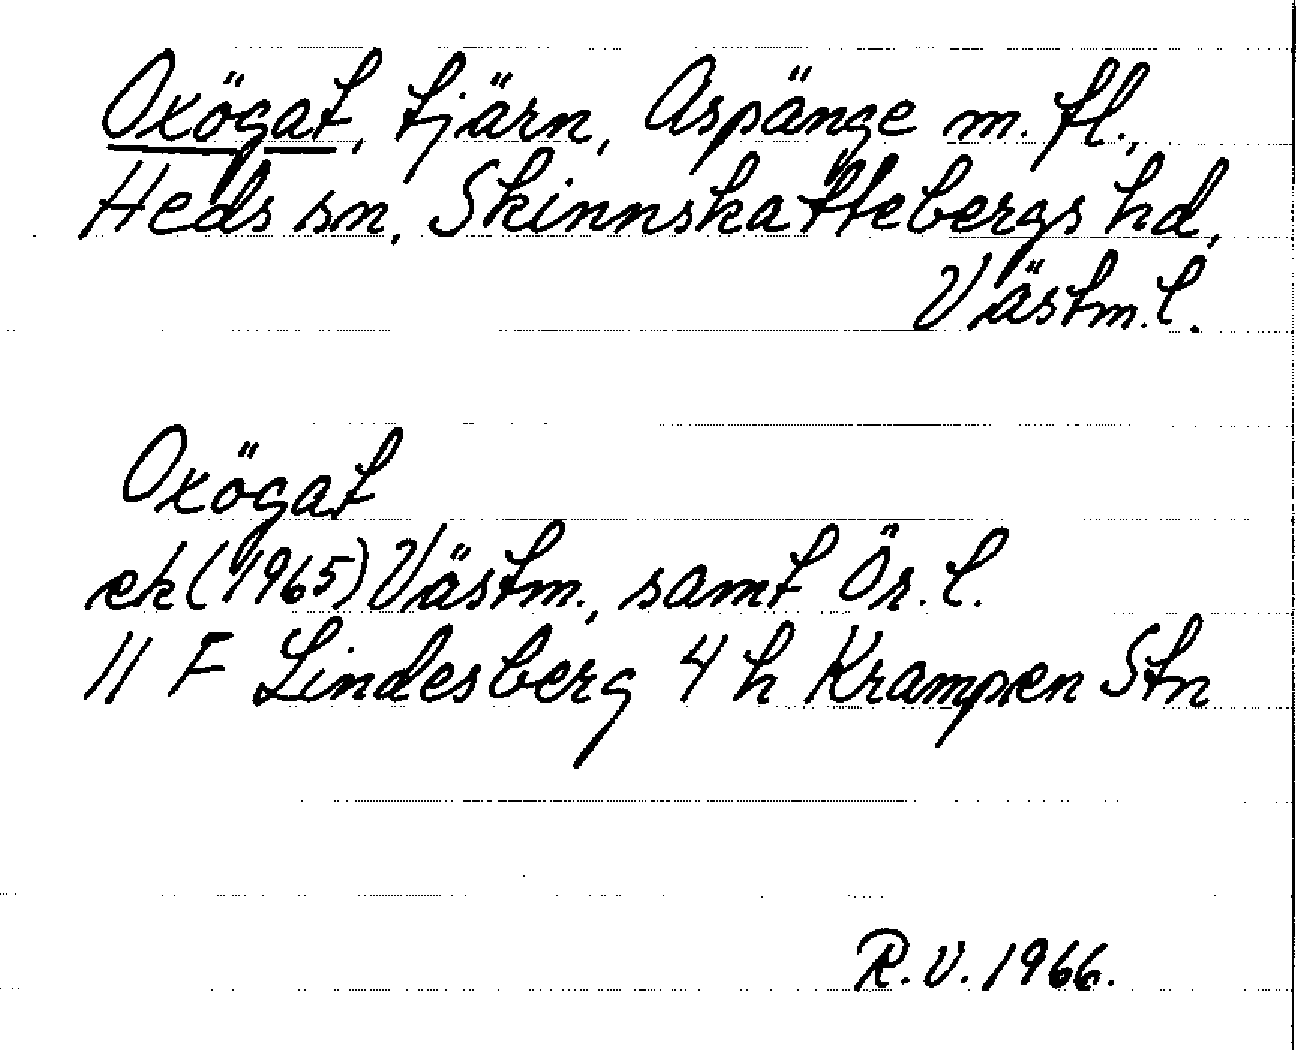 Oxögat, tjärn, Aspänge m. fl.,
Heds sn, Skinnskattebergs hd,
Västm. l.
Oxögat
ek (1965) Västm., samt Ör. l.
11 F Lindesberg 4 h Krampen Stn
R. V. 1966.